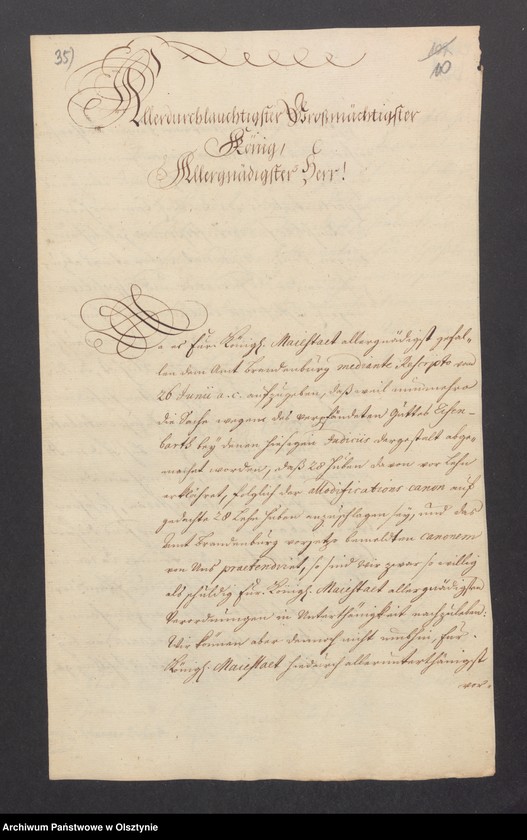 35)
107.
110
Allerdurchlauchtigster Großmächtigster
König,
Allergnädigster Herr!
Da es Eur. Königl. Maiestaet allergnädigst gefal-
len dem Amt Brandenburg mediante Rescripto von
26 Junii a. c. aufzugeben, daß weil nunmehro
die Sache wegen des verpfändeten Guttes Eisen-
barth bey denen hiesigen Judiciis dergestalt abge-
machet worden, daß 28 Huben davon vor Lehn
erklähret, folglich der Modifications canon auf
gedachte 28 Lehn Huben anzuschlagen sey, und das
Amt Brandenburg vorjetzo bemeldten canonem
von Uns praetendiret, so sind wir zwar so willig
als schuldig Eur. Königl. Maiestaet allergnädigsten
Verordnungen in Unterthänigkeit nachzuleben:
Wir können aber dennoch nicht umhin, Eur.
Königl. Maiestaet hiedurch allerunterthänigst
vor-
Archiwum Państwowe w Olsztynie